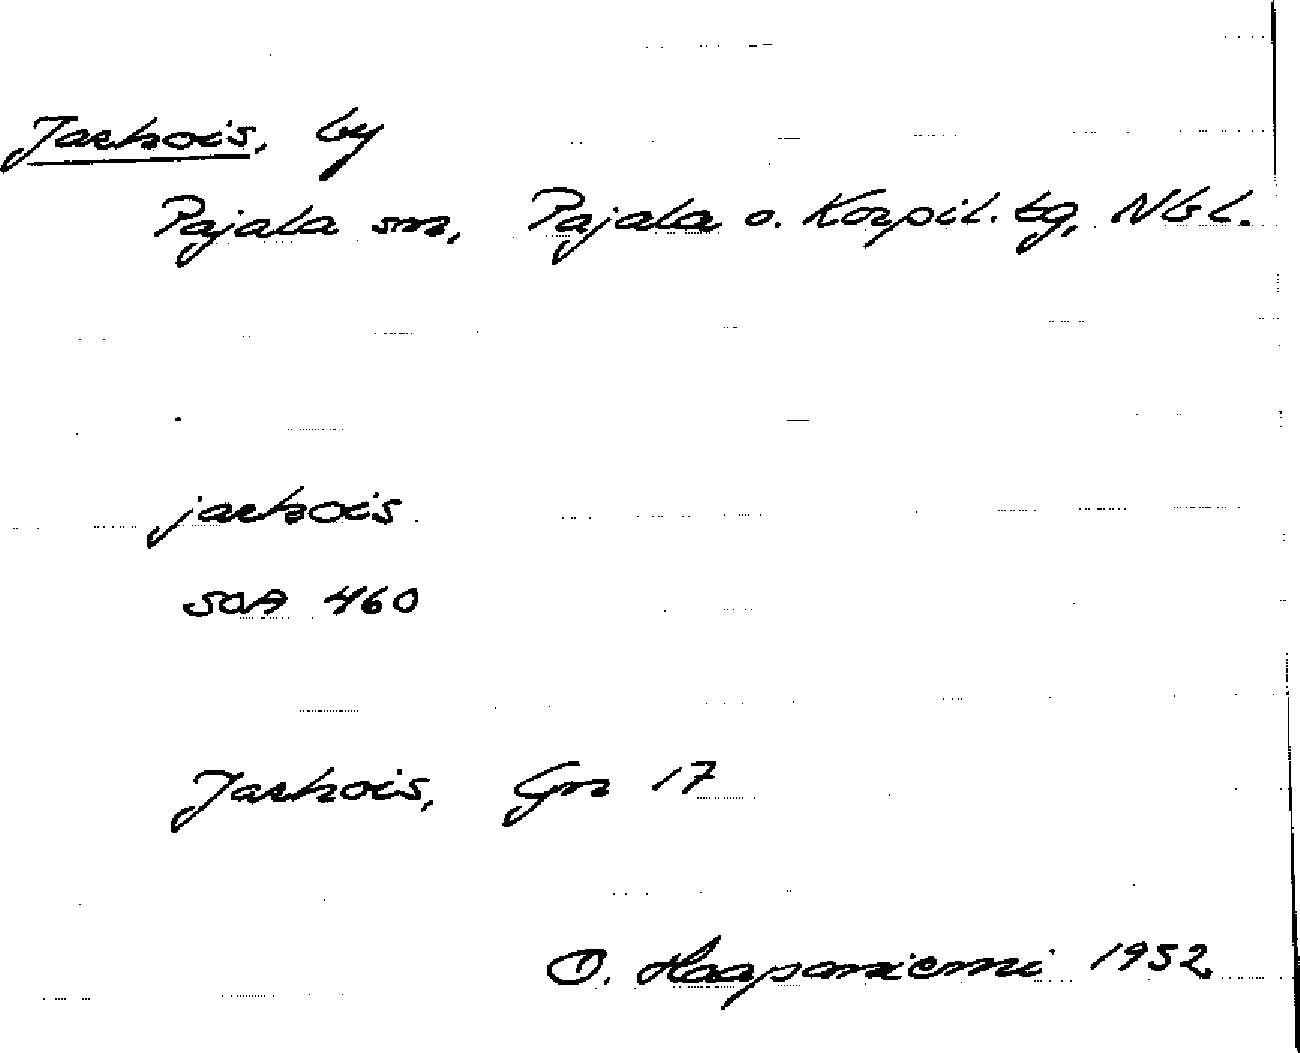 Jarhois, by
Pajala sn, Pajala o. Korpil. tg, Nbl.
jarhois
SOA 460
Jarhois, Gn 17
O. Haapaniemi 1952